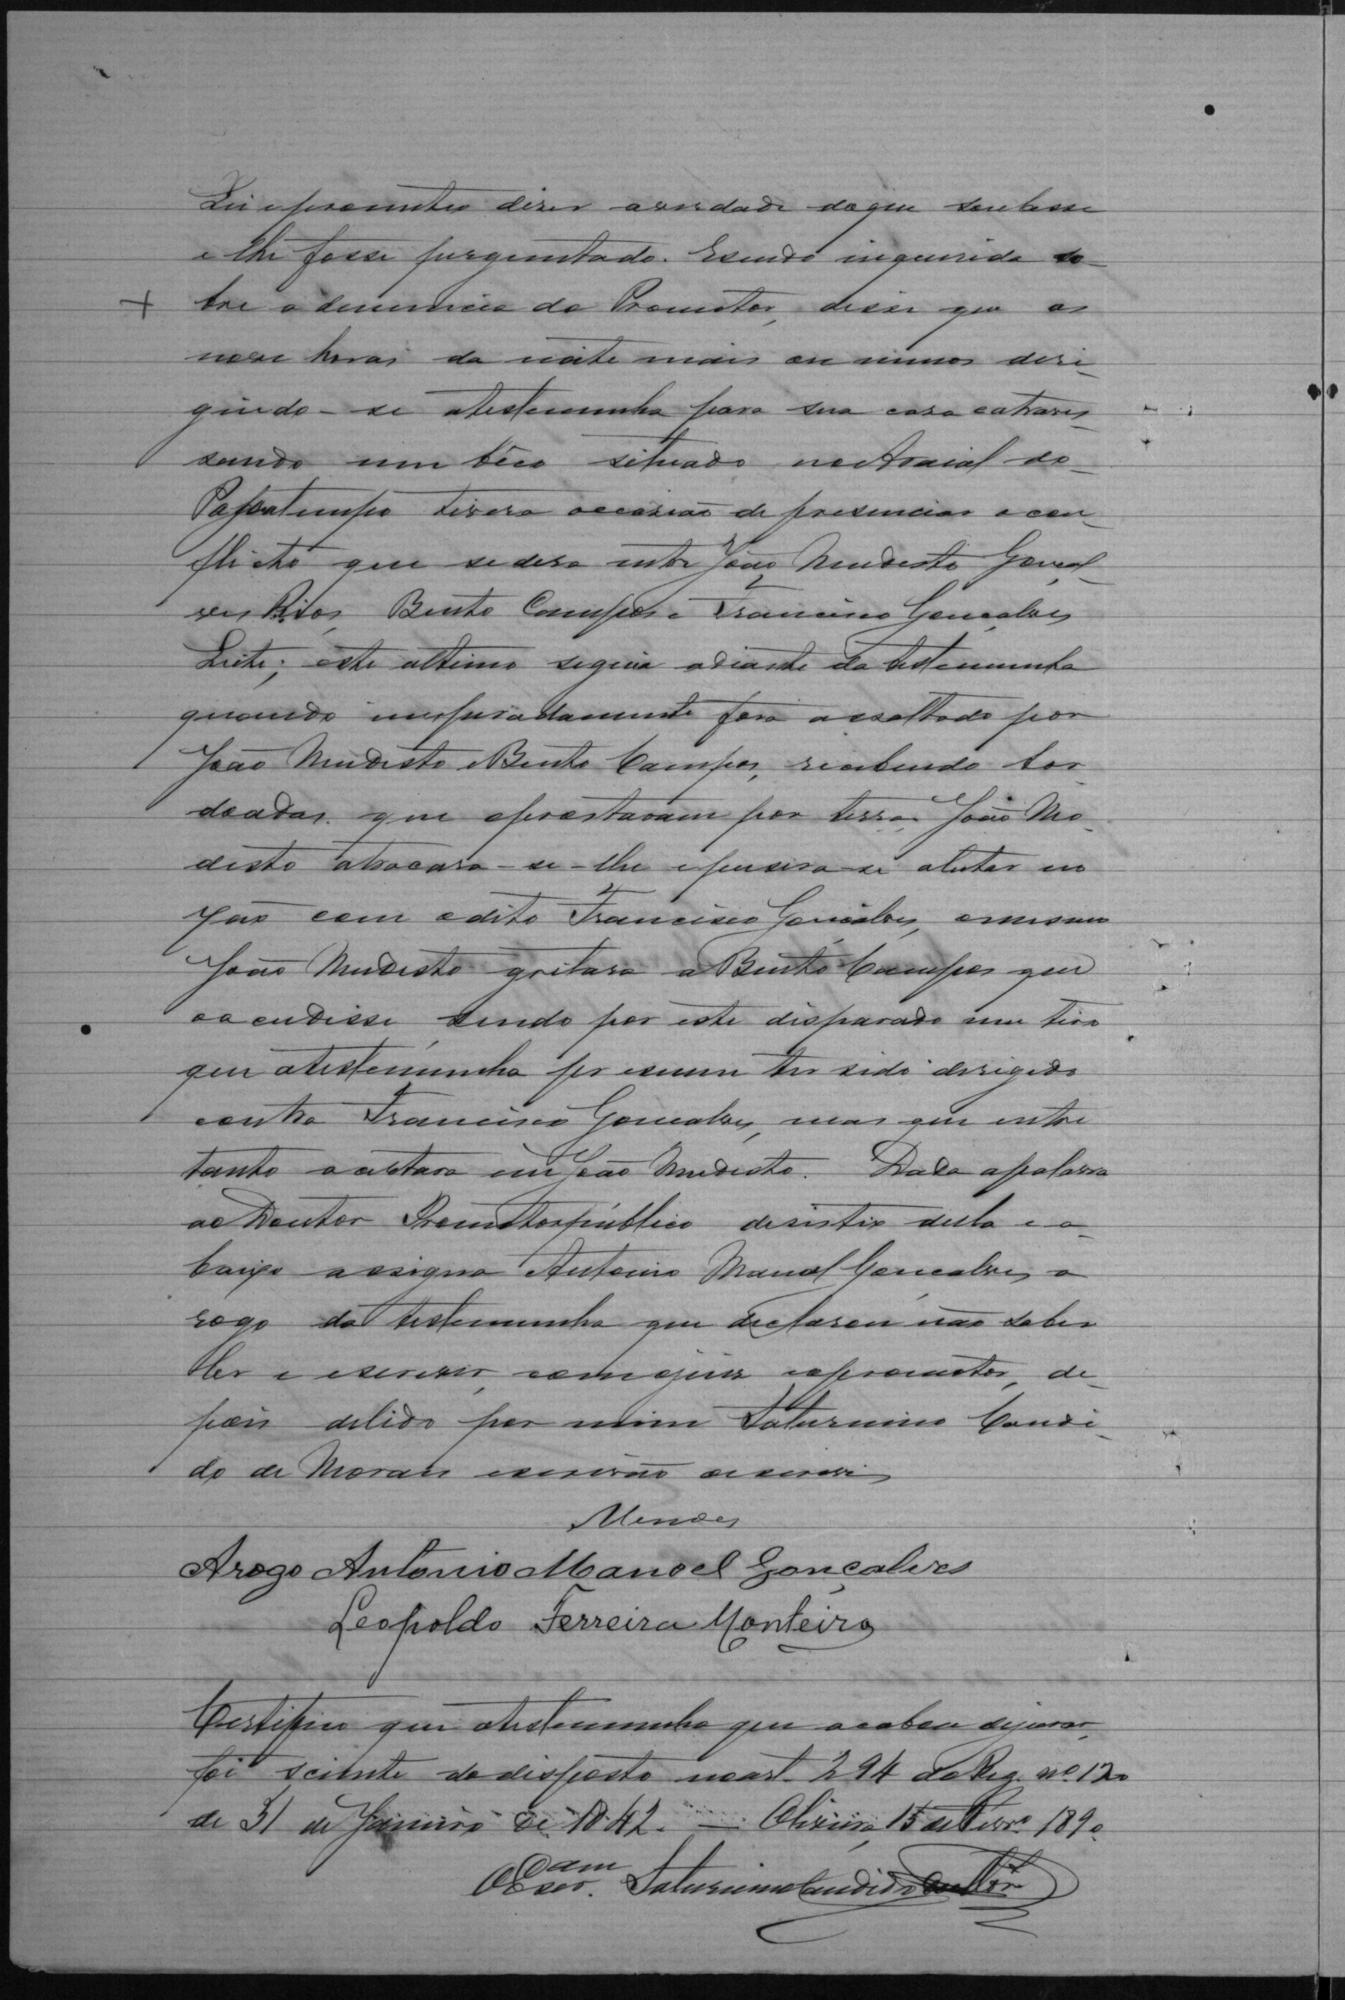 Lei e prometteo diser a verdade do que soubesse
e lhe fosse perguntado. Esendo inquirida so-
bre a denuncia do Promotor, disse que as
nove horas da noite mais ou menos diri-
gindo-se atestemunha para sua casa eatraves-
sando um bêco situado no Arraial do
Passatempo tivera occasião de presenciar o con-
flicto que se dera entre João Modesto Gonçal-
ves Rios, Bento Campos e Francisco Gonçalves
Leite; este ultimo seguia adiante da testemunha
quando inesperadamente fora assaltado por
João Modesto e Bento Campos, recebendo bor-
doadas que oprostaram por terra. João Mo-
desto atracara-se-lhe e pusera-se alutar no
xão com odito Francisco Gonçalves, omesmo
João Modesto gritara a Bento Campos que
oacudisse, sendo por este disparado um tiro
que atestemunha presume ter sido dirigido
contra Francisco Gonçalves, mas que entre
tanto acertara em João Modesto. Dada apalavra
ao Doutor Promottor publico desistio della e a-
baixo assigna Antonio Manoel Gonçalves a
rogo da testemunha que declarou não saber
ler e escrever, com ojuiz eopromotor, de-
pois delido por mim Saturnino Candi-
do de Moraes escrivão oescrevi
Mendes
Arogo Antonio Manoel Gonçalves
Leopoldo Ferreira Monteiro
Certifico que atestemunha que acabou dejurar
foi sciente dodisposto noart. 294 do Reg. nº 120
de 31 de Janeiro de 1842. — Oliveira, 15 de Fevrº 1890
OEscr. Saturnino Candido